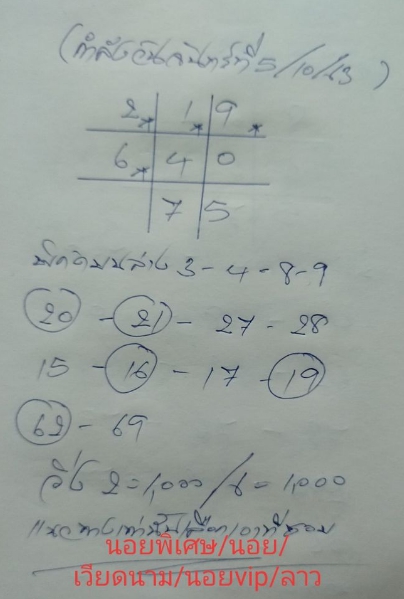 (กำลังวันจันทร์ที่ 5/10/63)
2 1 9
6 4 0
7 5
3-4-8-9
20 - 21 - 27 - 28
15 - 16 - 17 - 19
62 - 69
วิ่ง 2 = 1,000 / 6 = 1,000
แนวทางเท่านั้น
นอยพิเศษ/นอย/
เวียดนาม/นอยvip/ลาว